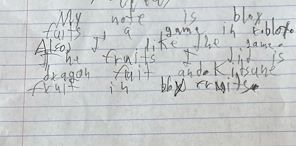 My note is blox
fuits a game in roblox
Also, I like the game.
The fruits I like is
dragon fuit and Kitsune
fruit in blox fruits.